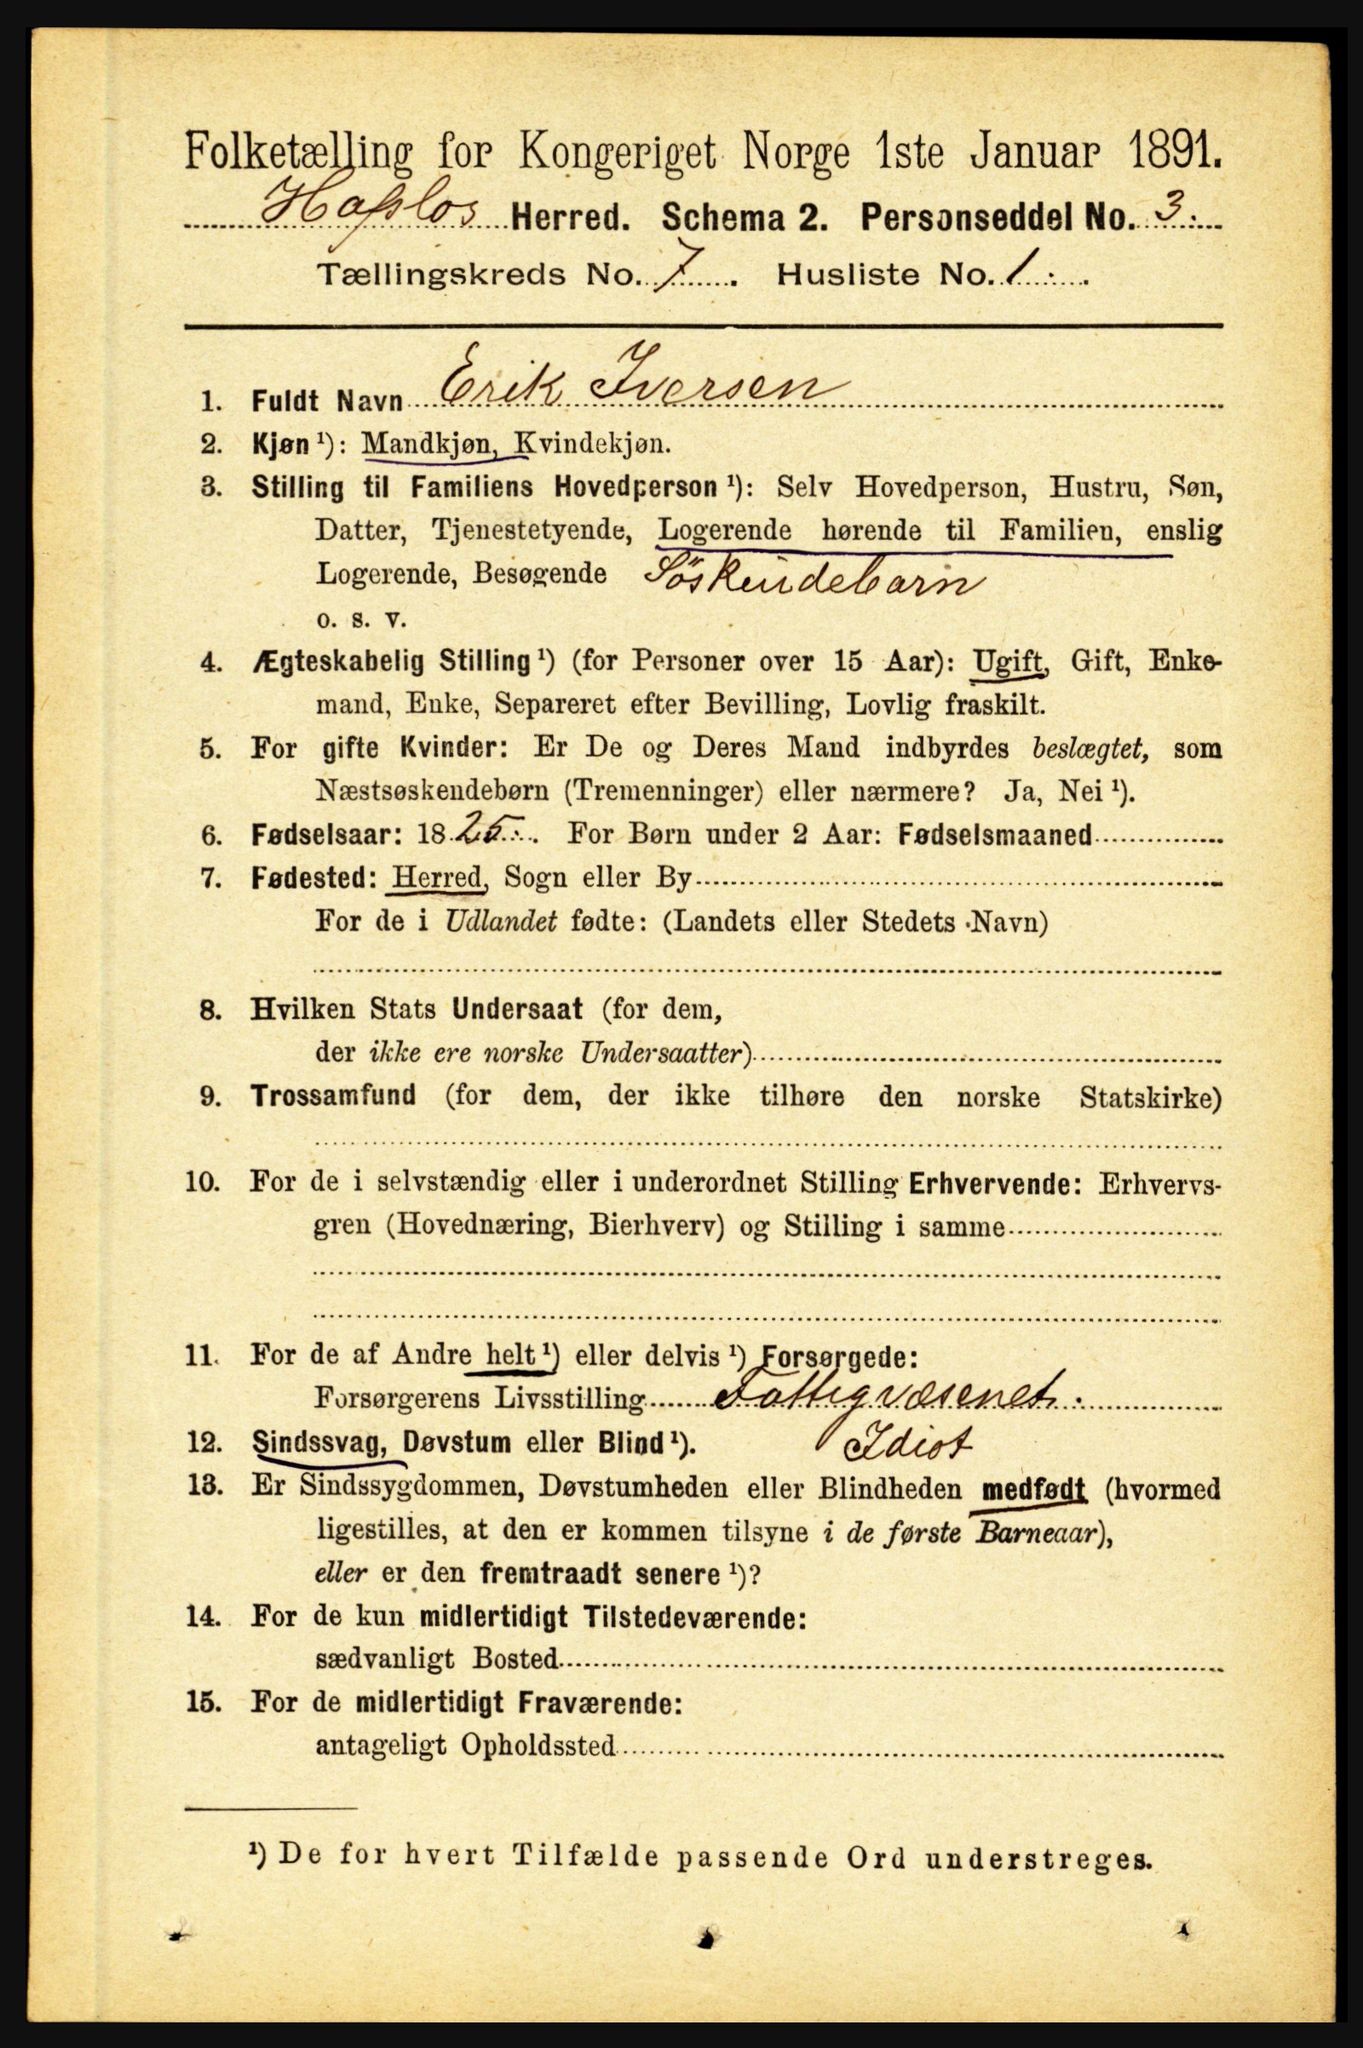 Folketælling for Kongeriget Norge 1ste Januar 1891.
Hafslo Herred. Schema 2. Personseddel No. 3.
Tællingskreds No. 7. Husliste No. 1.
1. Fuldt Navn Erik Iversen
2. Kjøn ¹): Mandkjøn, Kvindekjøn.
3. Stilling til Familiens Hovedperson ¹): Selv Hovedperson, Hustru, Søn,
Datter, Tjenestetyende, Logerende hørende til Familien, enslig
Logerende, Besøgende Söskendebarn
o. s. v.
4. Ægteskabelig Stilling ¹) (for Personer over 15 Aar): Ugift, Gift, Enke-
mand, Enke, Separeret efter Bevilling, Lovlig fraskilt.
5. For gifte Kvinder: Er De og Deres Mand indbyrdes beslægtet, som
Næstsøskendebørn (Tremenninger) eller nærmere? Ja, Nei ¹).
6. Fødselsaar: 1825. For Børn under 2 Aar: Fødselsmaaned
7. Fødested: Herred, Sogn eller By
For de i Udlandet fødte: (Landets eller Stedets Navn)
8. Hvilken Stats Undersaat (for dem,
der ikke ere norske Undersaatter)
9. Trossamfund (for dem, der ikke tilhøre den norske Statskirke)
10. For de i selvstændig eller i underordnet Stilling Erhvervende: Erhvervs-
gren (Hovednæring, Bierhverv) og Stilling i samme
11. For de af Andre helt ¹) eller delvis ¹) Forsørgede:
Forsørgerens Livsstilling Fattigvæsenet.
12. Sindssvag, Døvstum eller Blind ¹). Idiot
13. Er Sindssygdommen, Døvstumheden eller Blindheden medfødt (hvormed
ligestilles, at den er kommen tilsyne i de første Barneaar),
eller er den fremtraadt senere ¹)?
14. For de kun midlertidigt Tilstedeværende:
sædvanligt Bosted
15. For de midlertidigt Fraværende:
antageligt Opholdssted
¹) De for hvert Tilfælde passende Ord understreges.